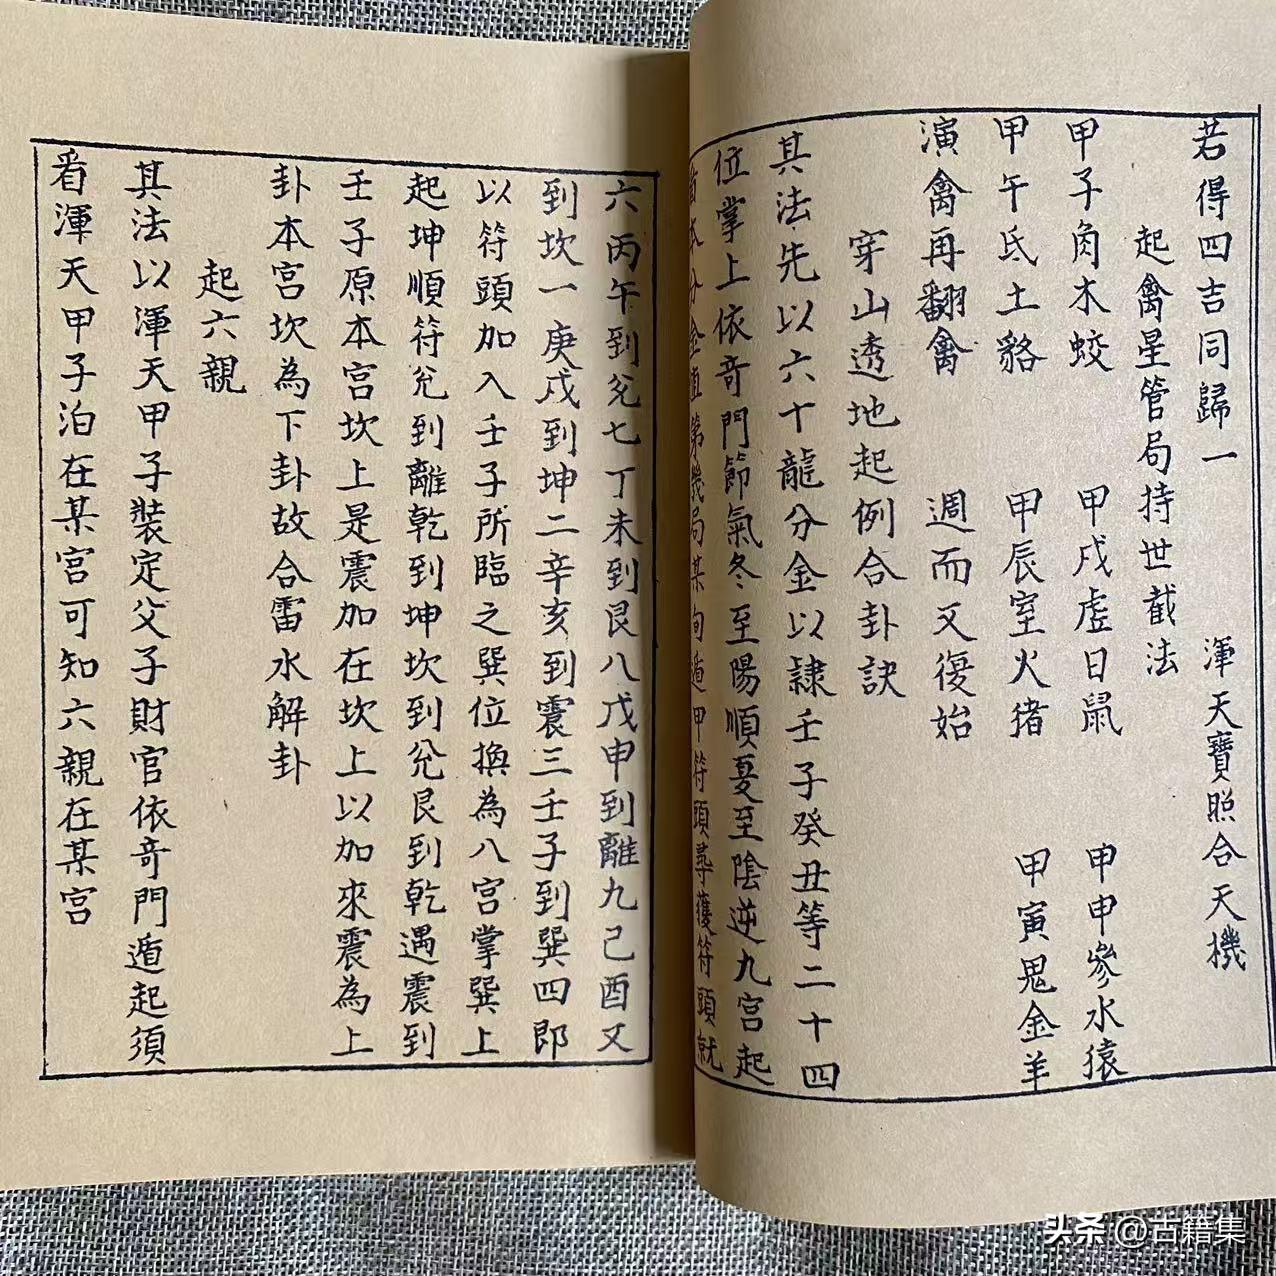 若得四吉同歸一 渾天寶照合天機
起禽星管局持世截法
甲子角木蛟 甲戌虛日鼠 甲申參水猿
甲午氐土貉 甲辰室火猪 甲寅鬼金羊
演禽再翻禽 週而又復始
穿山透地起例合卦訣
其法先以六十龍分金以隸壬子癸丑等二十四
位掌上依奇門節氣冬至陽順夏至陰逆九宮起
分金值第幾局某旬遁甲符頭尋獲符頭就
六丙午到兌七丁未到艮八戊申到離九己酉又
到坎一庚戌到坤二辛亥到震三壬子到巽四即
以符頭加入壬子所臨之巽位換為八宮掌巽上
起坤順符兌到離乾到坤坎到兌艮到乾遇震到
壬子原本宮坎上是震加在坎上以加來震為上
卦本宮坎為下卦故合雷水解卦
起六親
其法以渾天甲子裝定父子財官依奇門遁起須
看渾天甲子泊在某宮可知六親在某宮
头条 @古籍集